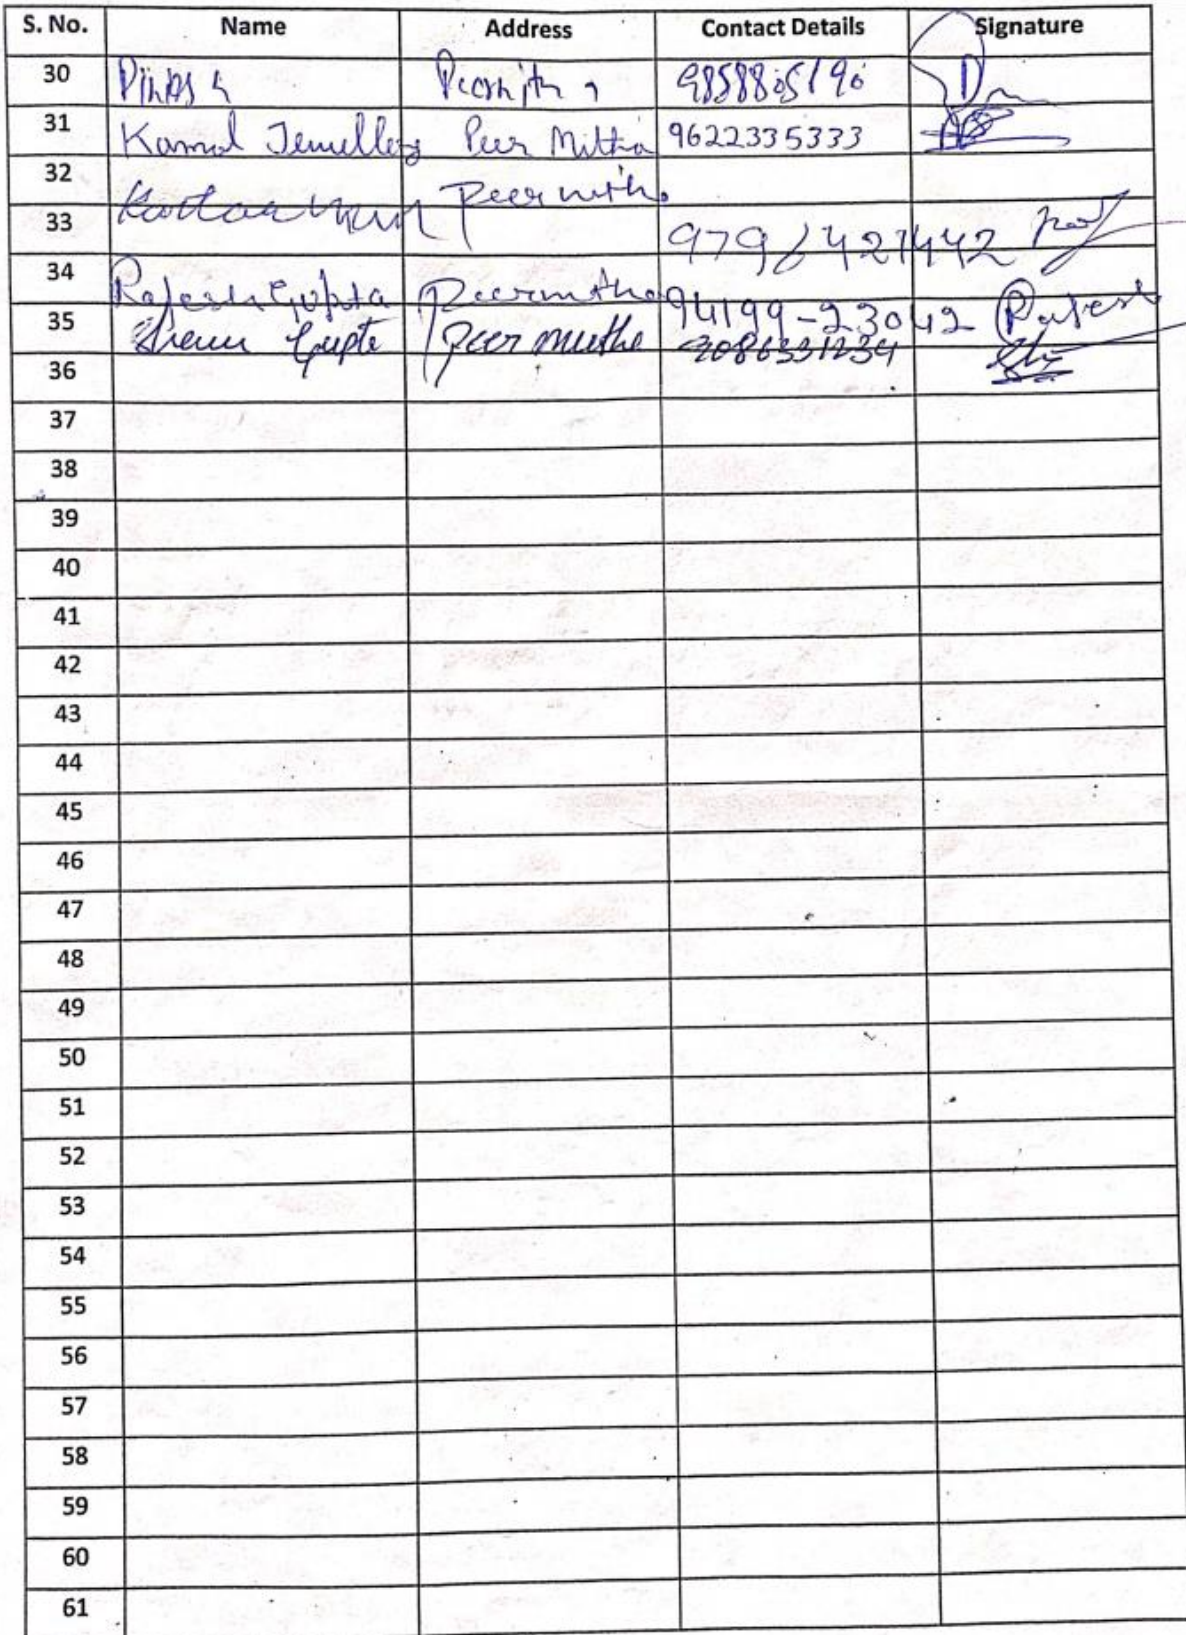 S. No. Name Address Contact Details Signature
30 9858805190
31 Kamal Jewellers Peer Mitha 9622335333
32 Peer mitha
33 9796421442
34 Rajesh Gupta Peermitha 94199-23042 Rajesh
35 Gupta Peer mitha
36
37
38
39
40
41
42
43
44
45
46
47
48
49
50
51
52
53
54
55
56
57
58
59
60
61